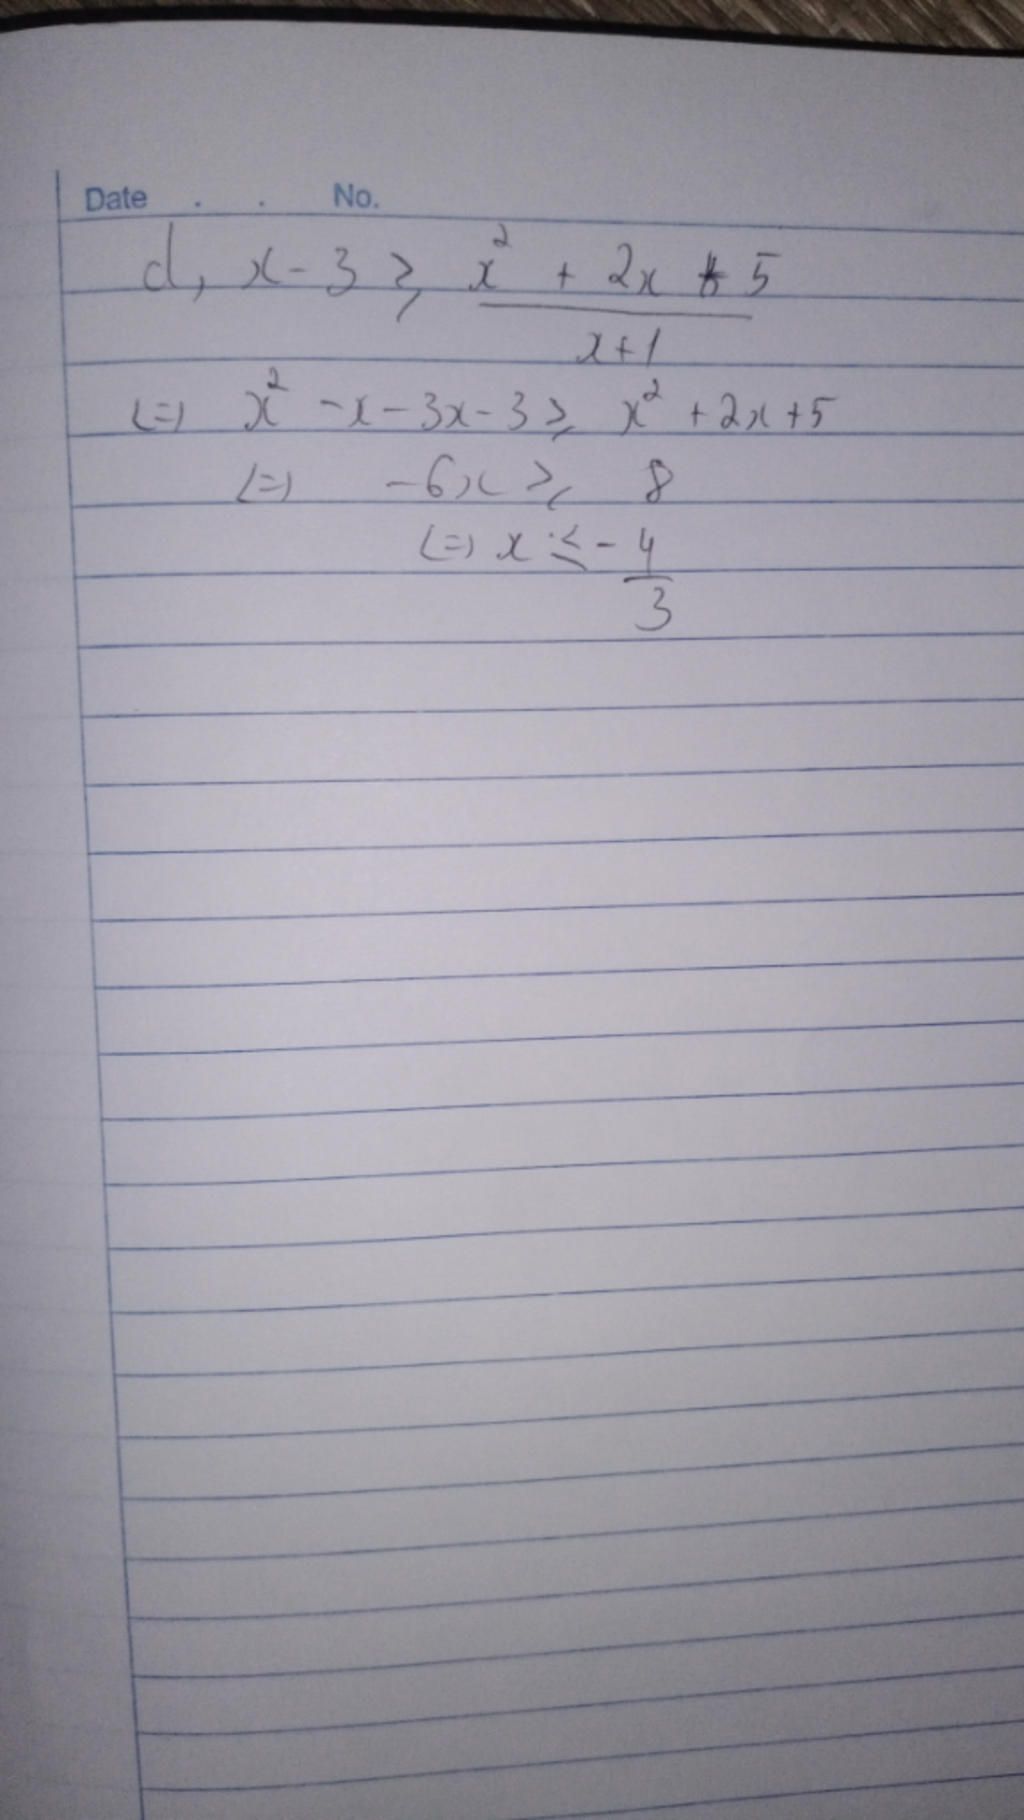 Date . . No.
d, x - 3 ≥ x² + 2x + 5
x+1
(=) x² - x - 3x - 3 ≥ x² + 2x + 5
(=) - 6x ≥ 8
(=) x ≤ - 4
3